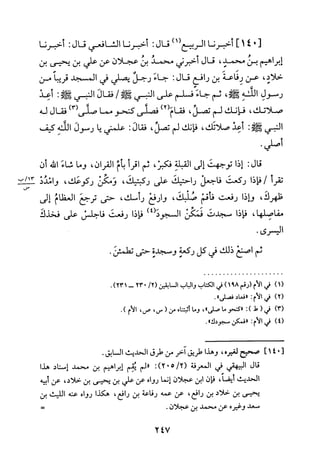 [١٤٠] أخبرنا الربيع(١) قال: أخبرنا الشافعي قال: أخبرنا
إبراهيم بنُ محمدٍ، قال أخبرني محمدُ بنُ عجلانَ عن علي بن يحيى بن
خلادٍ، عن رِفَاعَةَ بن رافعٍ قال: جاءَ رجلٌ يصلي في المسجد قريباً من
رسولِ اللَّهِ ﷺ، ثم جاءَ فسلم على النبي ﷺ / فقالَ النبي ﷺ: أعِدْ
صلاتَك، فإنك لم تصلِّ، فقامَ(٢) فصلَّى كنحوِ مما صلَّى(٣) فقال له
النبي ﷺ: أعِدْ صلاتَك، فإنك لم تصلِّ، فقالَ: علمني يا رسولَ اللَّهِ كيف
أصلي.
قال: إذا توجهتَ إلى القبلةِ فكبرْ، ثم اقرأ بأمِّ القرآنِ، وما شاءَ اللَّهُ أن
تقرأَ / فإذا ركعتَ فاجعلْ راحتيكَ على ركبتيكَ، وَمَكِّنْ ركوعَك، وامْدُدْ
١٣/ب
ظهرَكَ، وإذا رفعت فأقمْ صُلْبَكَ، وارفعْ رأسَك، حتى ترجعَ العظامُ إلى
مفاصلِها، فإذا سجدتَ فَمَكِّنْ السجودَ(٤) فإذا رفعتَ فاجلسْ على فخذكَ
اليسرى.
ثم اصنعْ ذلكَ في كلِّ ركعةٍ وسجدةٍ حتى تطمئنَّ.
(١) في الأم (رقم ١٩٨) في الكتاب والباب السابقين (٢/ ٢٣٠ ــ ٢٣١).
(٢) في الأم: «فعاد فصلى».
(٣) في (ط): «كنحو ما صلى»، وما أثبتناه من (س، ص، الأم).
(٤) في الأم: «فمكن سجودك».
[١٤٠] صحيح لغيره، وهذا طريق آخر من طرق الحديث السابق.
قال البيهقي في المعرفة (٢٠٥/٢): «لم يُقِم إبراهيم بن محمد إسناد هذا
الحديث أيضاً، فإن ابن عجلان إنما رواه عن علي بن يحيى بن خلاد، عن أبيه
يحيى بن خلاد بن رافع، عن عمه رفاعة بن رافع، هكذا رواه عنه الليث بن
سعد وغيره عن محمد بن عجلان. =
٢٤٧